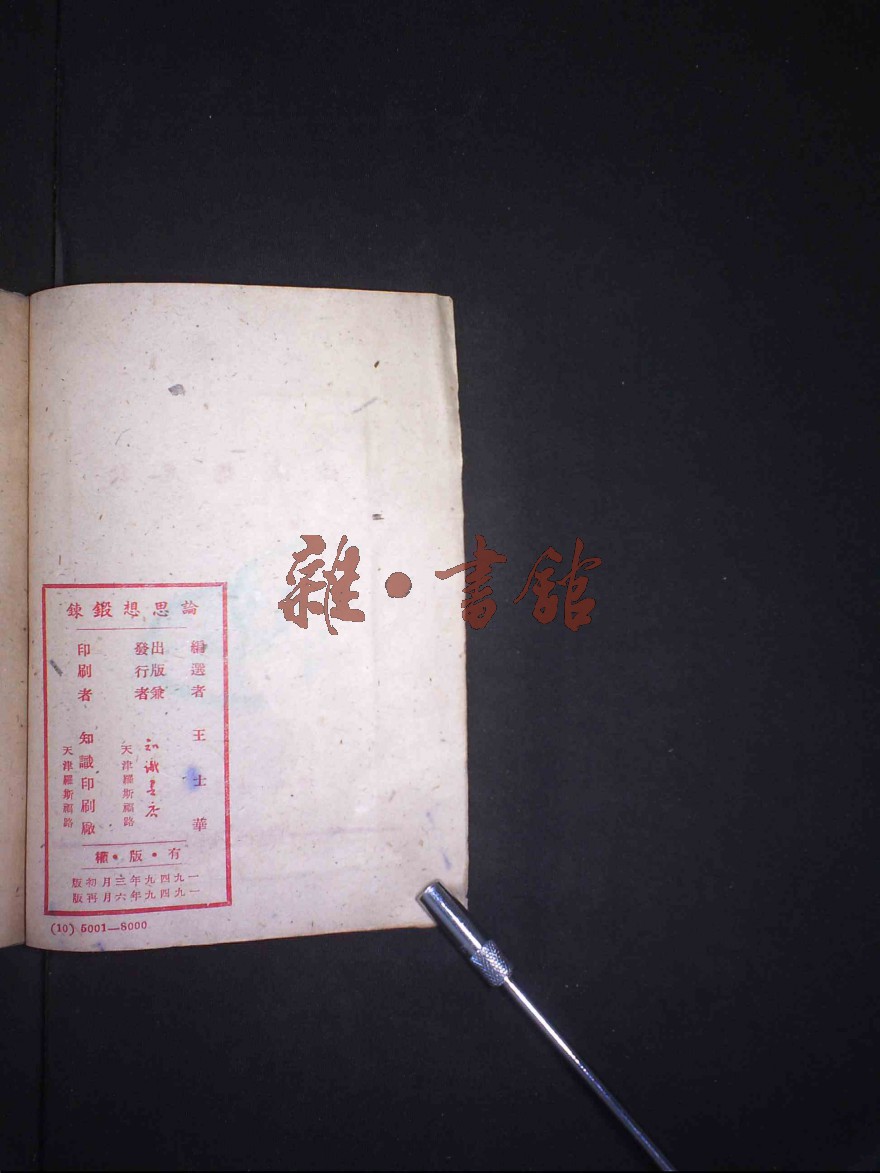 論思想鍛鍊
編選者 王士華
出版兼發行者 知識書店
天津羅斯福路
印刷者 知識印刷廠
天津羅斯福路
有·版·權
一九四九年三月初版
一九四九年六月再版
(10) 5001—8000
雜·書館